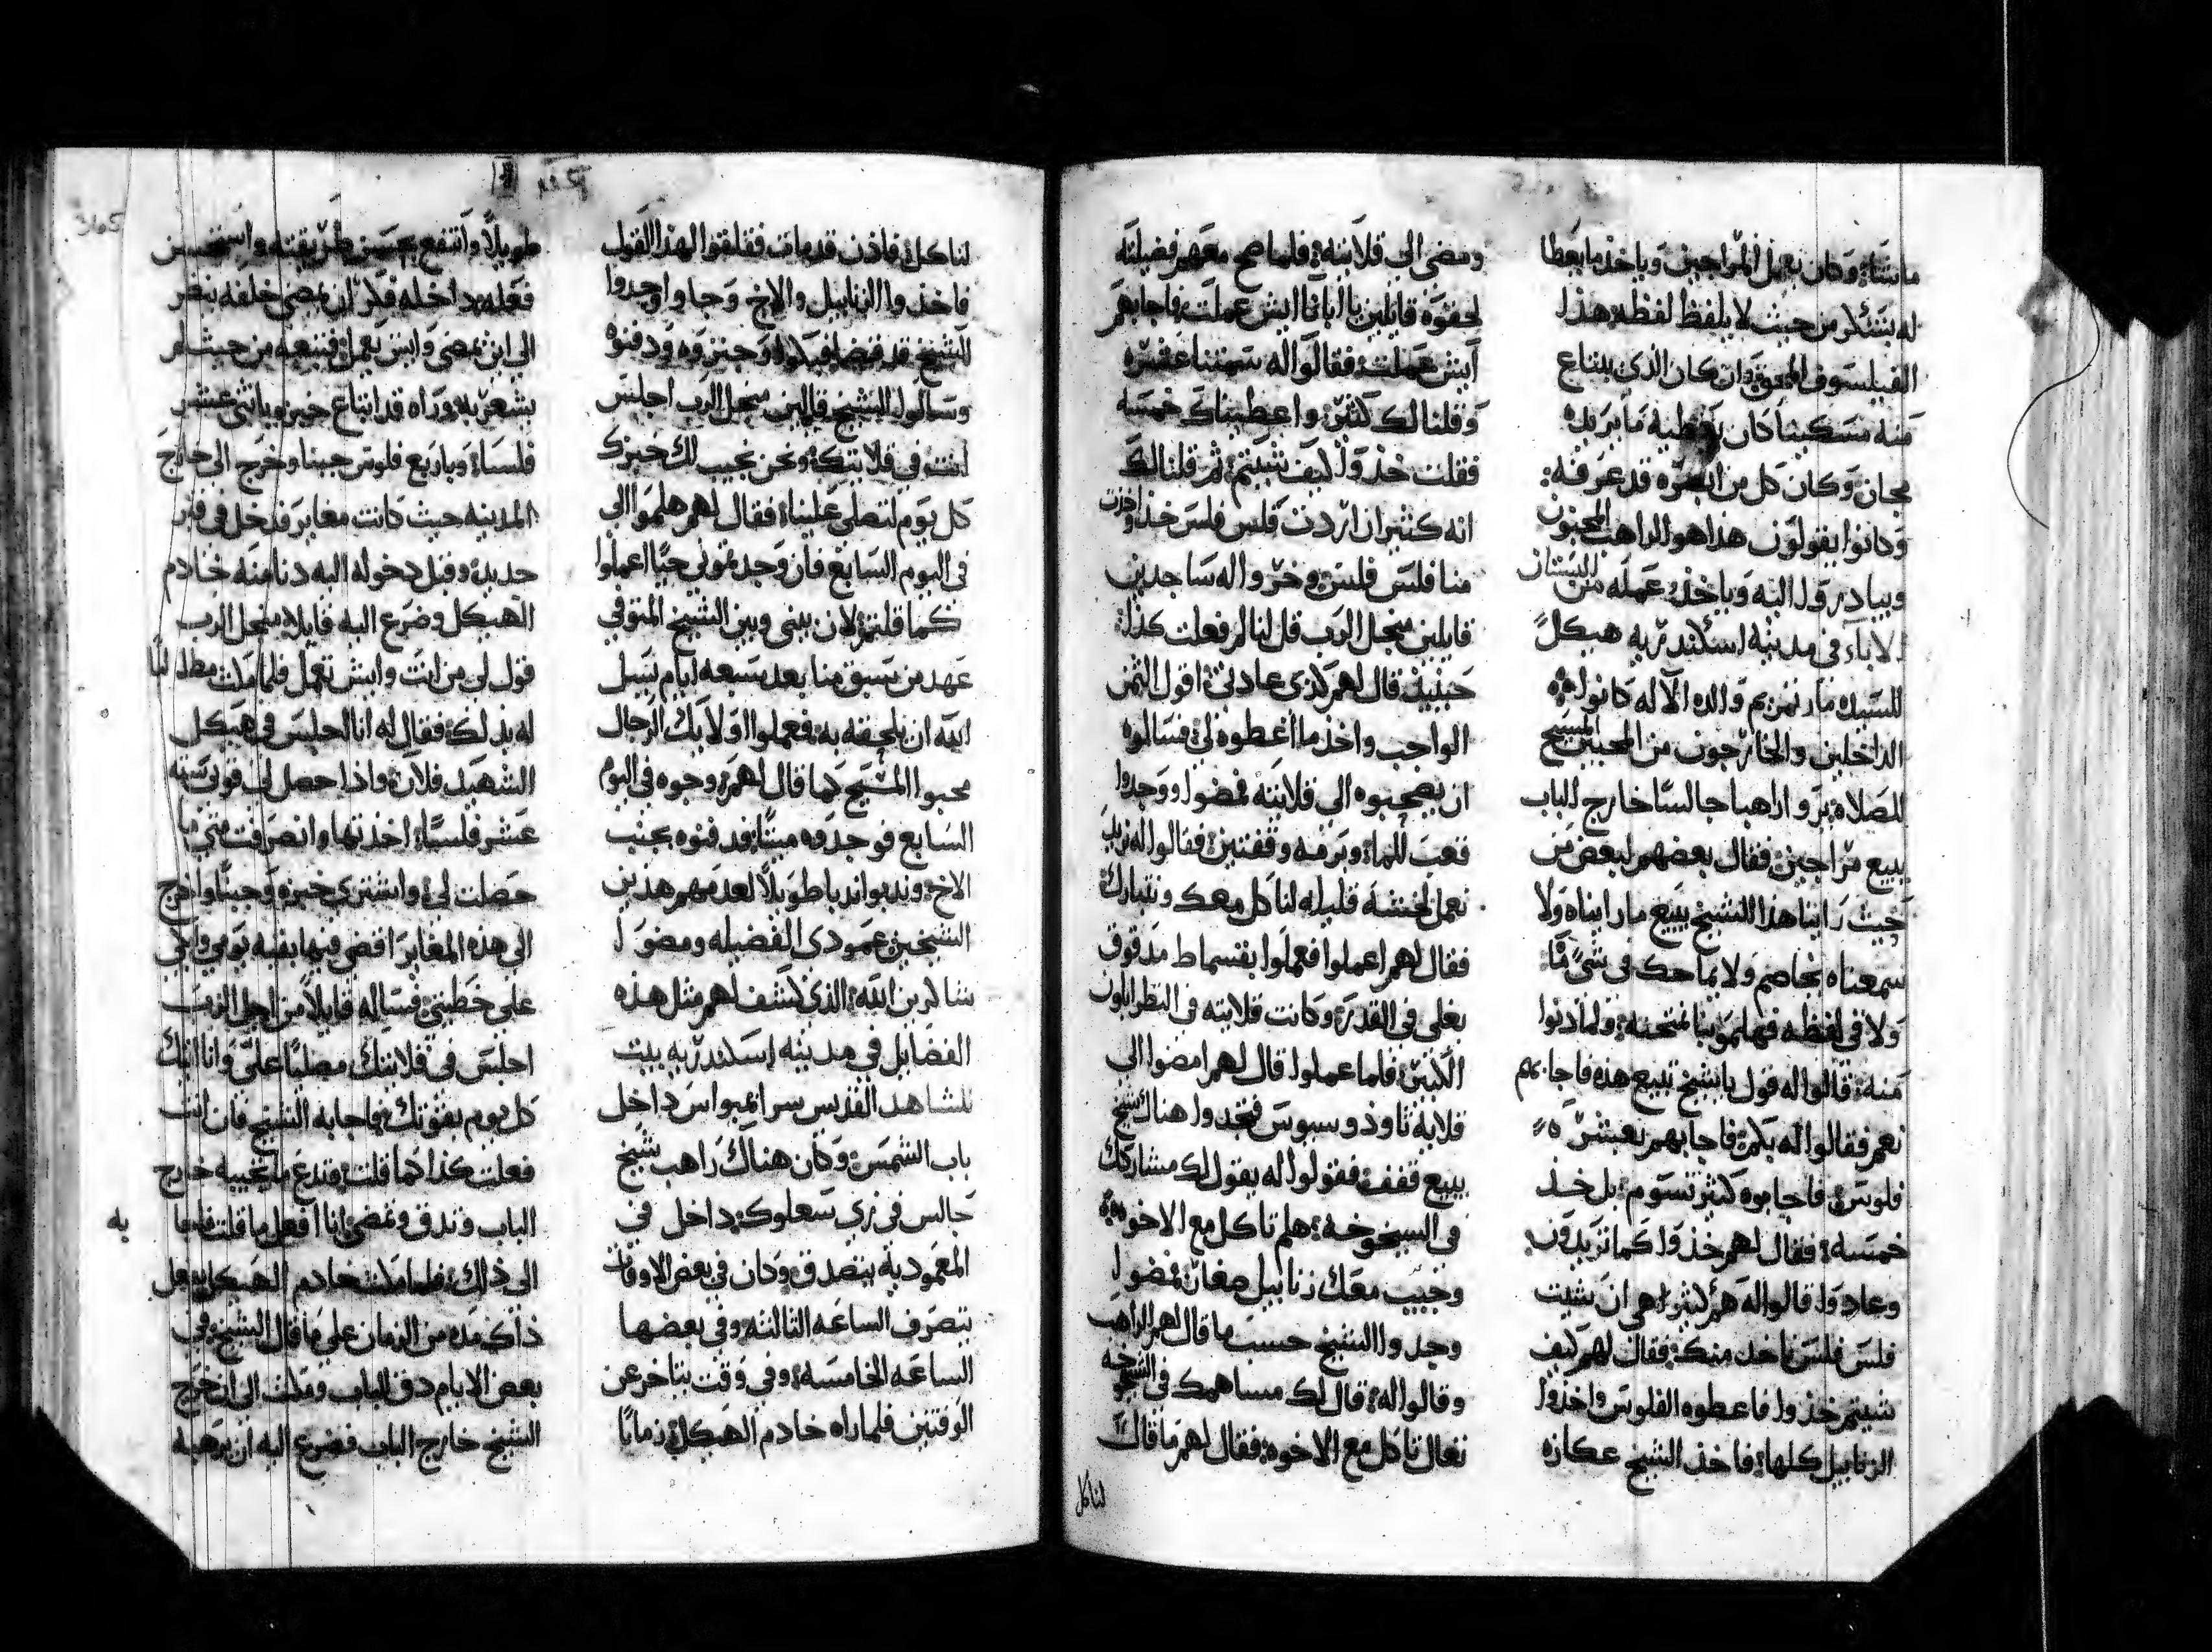 ما يشاء وكان يعمل المراجين وياخذ ما يعطا
له بتنكر من حيث لا يلفظ لفظه هذا
الفيلسوف وان كان الذي يبتاع
منه مسكينا كان يعطيه ما يريده
مجان وكان كل من ابصره قد عرفه
وكانوا يقولون هذا هو الراهب المجنون
ويبادرون اليه وياخذو عمله من البستان
الاباء في مدينة اسكندريه هيكل
للسيده مارتمريم والده الاله كانوا
الداخلين والخارجون من المحبين المسيح
للصلاه يرو راهبا جالسا خارج الباب
يبيع مراجين فقال بعضهم لبعض من
حيث راينا هذا الشيخ يبيع ما رايناه ولا
سمعناه يخاصم ولا يماحك في شي ما
ولا في لفظه فهلموا بنا نمتحنه ولما دنوا
منه قالوا له قول يا شيخ تبيع هذه فاجابهم
نعم فقالوا له بكم فاجابهم بعشره
فلوس فاجابوه كثير تسوم بل خذ
خمسه فقال لهم خذوا كما تريدون
وعادوا قالوا له هم كثير هي ان شيت
فلس فلس ناخذ منك فقال لهم كيف
شيتم خذوا فاعطوه الفلوس واخذوا
الزنابيل كلها فاخذ الشيخ عكازه
ومضى الى قلايته فلما صح معهم فضيلته
لحقوه قايلين يا ابانا ايش عملت فاجابهم
ايش عملت فقالوا له سمتنا عشره
وقلنا لك كثير واعطيناك خمسه
فقلت خذوا كيف شيتم ثم قلنا لك
انه كثير ان اردت فلس فلس خذ واخذت
منا فلس فلس وخروا له ساجدين
قايلين من اجل الرب قل لنا لم فعلت كذا
حينيذ قال لهم كذي عادتي اقول الثمن
الواجب واخذ ما اعطوه لي فسالوه
ان يصحبوه الى قلايته فمضوا ووجدوا
قعب للماء وبرمه وقفتين فقالوا له نريد
نعمل لخشة قليله لنا كل معك ونتبارك
فقال لهم اعملوا فعملوا بقسماط مدقوق
يغلي في القدر وكانت قلايته في النظرابلون
الكبير فلما عملوا قال لهم امضوا الى
قلاية تاوذوسيوس فتجدوا هناك شيخ
يبيع قفف فقولوا له يقول لك مشاركك
في الشيخوخه هلم تاكل مع الاخوه
وجيب معك زنابيل صغار فمضوا
وجدوا الشيخ حسب ما قال لهم الراهب
وقالوا له قال لك مساهمك في الشيخوخه
تعال تاكل مع الاخوه فقال لهم ما قال
لنا كل
لنا كل فاذن قد مات فقلقوا لهذا القول
فاخذوا الزنابيل والاخ وجاوا وجدوا
الشيخ قد قضا فبكوا وجنزوه ودفنوه
وسالوا الشيخ قايلين من اجل الرب اجلس
انت في قلايتك ونحن نجيب لك خبزك
كل يوم لتصلي علينا فقال لهم هلموا الي
في اليوم السابع فان وجدتموني حيا اعملوا
كما قلتم لان بيني وبين الشيخ المتوفي
عهد من تسبق منا بعد سبعه ايام يسل
الله ان يلحقه به ففعلوا اوليك الرجال
محبوا المسيح كما قال لهم وجوه في اليوم
السابع فوجدوه ميتا فدفنوه بجنب
الاخ وندبوا ندبا طويلا لعدمهم هذين
الشيخين عمودي الفضيله ومضوا
شاكرين الله الذي كشف لهم مثل هذه
الفضايل في مدينة اسكندريه بيت
للشاهد القديس سرانمبواس داخل
باب الشمس وكان هناك راهب شيخ
جالس في زي سعلوك داخل في
المعموديه يتصدق وكان في بعض الاوقات
يتصرف الساعه الثالثه وفي بعضها
الساعه الخامسه وفي وقت يتاخر عن
الوقتين فلما راه خادم الهيكل زمانا
365
طويلا وانتفع بحسن طريقته واستحسن
فعله بداخله فكر ان يمضي خلفه ينظر
الى اين يمضي وايش يعمل فتبعه من حيث لم
يشعر به وراه قد ابتاع خبز وباثني عشر
فلسا وباربع فلوس جبنا وخرج الى خارج
المدينه حيث كانت مغاير فدخل في قبر
جديد وقبل دخوله اليه دنا منه خادم
الهيكل وضرع اليه قايلا من اجل الرب
قول لي من انت وايش تعمل فلما
له بذلك فقال له انا اجلس في هيكل
الشهيد فلان واذا حصل لي قوتي سته
عشر فلسا اخذتها وانصرفت متي ما
حصلت لي واشتري خبزه وجبنا واخرج
الى هذه المغاير اقضي فيها بقيه يومي وابكي
على خطيتي فساله قايلا من اجل الرب
اجلس في قلايتك مصليا علي وانا اتيك
كل يوم بقوتك فاجابه الشيخ فان انت
فعلت كذا كما قلت فتدع ما تجيبه خارج
الباب وتدق وتمضي انا افعل ما قلت فلما
الى ذلك فلما خادم الهيكل يفعل
ذاك مده من الزمان على ما قال الشيخ في
بعض الايام دق الباب ومكث الى ان خرج
الشيخ خارج الباب فضرع اليه ان يرهبه
به